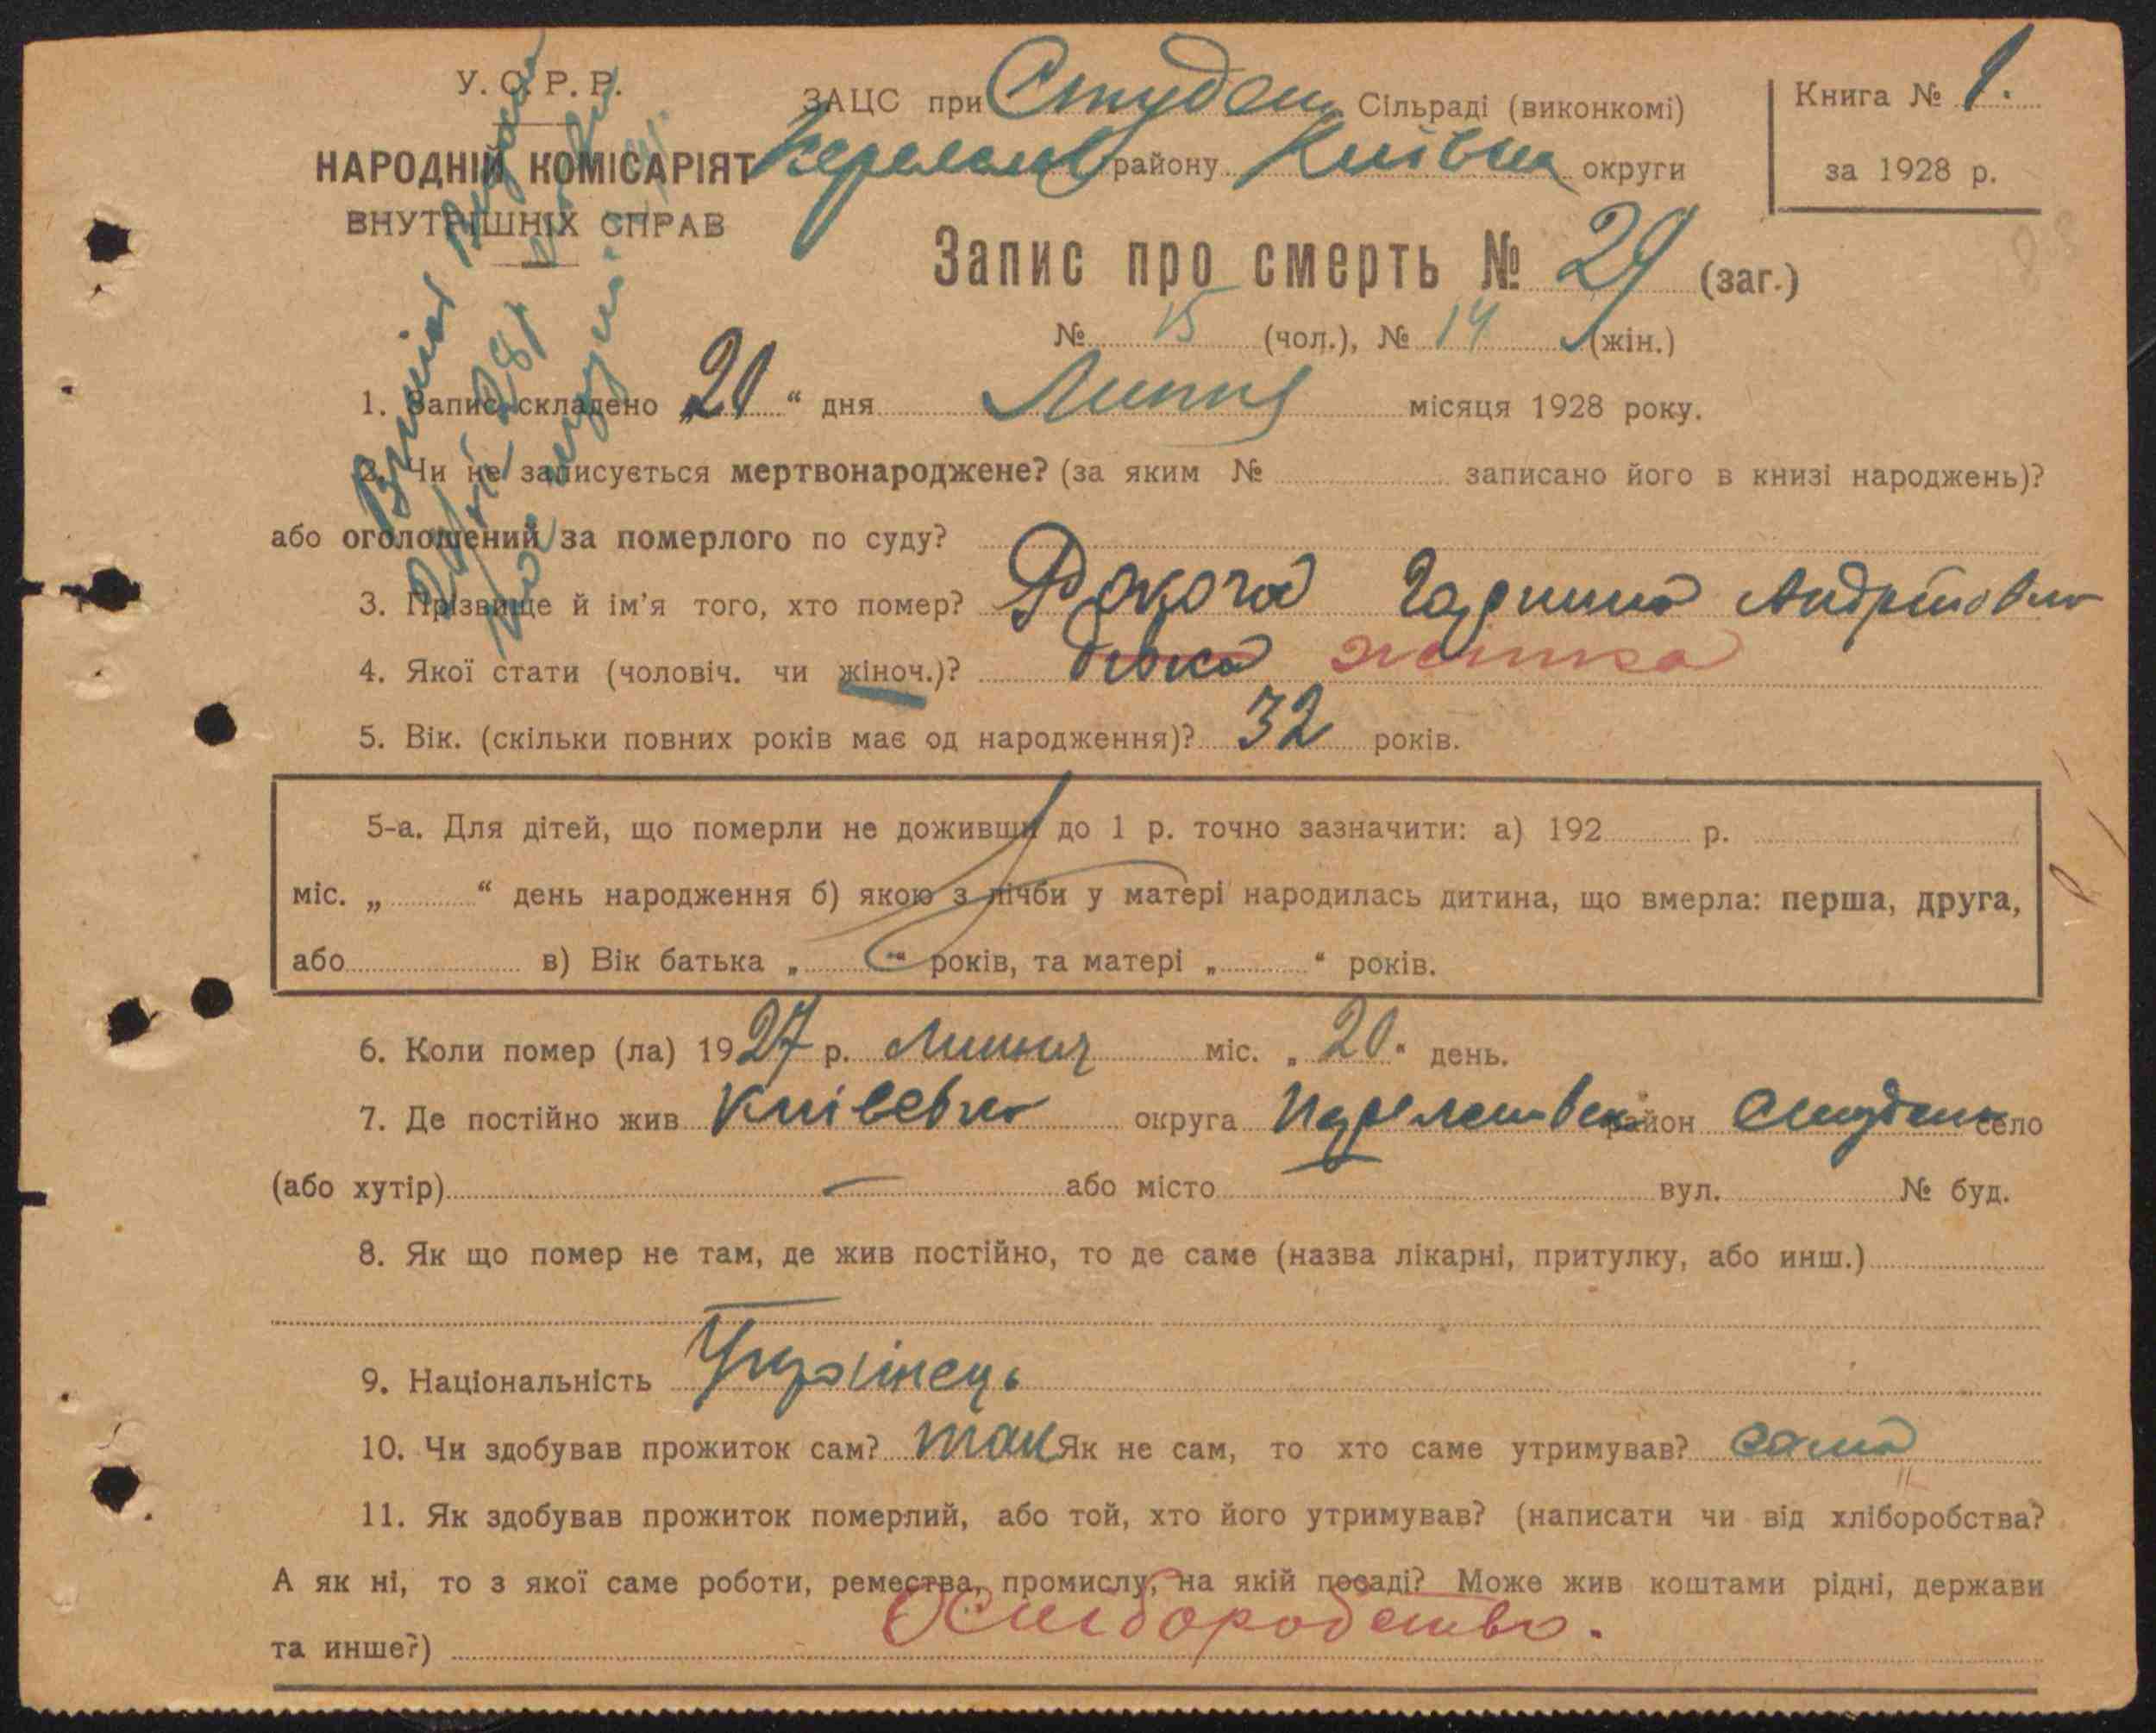 У.С.Р.Р.
НАРОДНІЙ КОМІСАРІЯТ
ВНУТРІШНІХ СПРАВ
ЗАЦС при Студен Сільраді (виконкомі)
району Київськ округи
Книга № 1.
за 1928 р.
Запис про смерть № 29 (заг.)
№ 15 (чол.), № 14 (жін.)
1. Запис складено „20“ дня Липня місяця 1928 року.
2. Чи не записується мертвонароджене? (за яким № записано його в книзі народжень)?
або оголошений за померлого по суду?
3. Прізвище й ім'я того, хто помер? Рокоча Гаврина Андріївна
4. Якої стати (чоловіч. чи жіноч.)? дівка жінка
5. Вік. (скільки повних років має од народження)? 32 років.
5-а. Для дітей, що померли не доживши до 1 р. точно зазначити: а) 192 р.
міс. „ “ день народження б) якою з лічби у матері народилась дитина, що вмерла: перша, друга,
або в) Вік батька „ “ років, та матері „ “ років.
6. Коли помер (ла) 1927 р. Липня міс. „20“ день.
7. Де постійно жив Київська округа район Студен село
(або хутір) — або місто вул. № буд.
8. Як що помер не там, де жив постійно, то де саме (назва лікарні, притулку, або инш.)
9. Національність Українець
10. Чи здобував прожиток сам? так Як не сам, то хто саме утримував? сама
11. Як здобував прожиток померлий, або той, хто його утримував? (написати чи від хліборобства?
А як ні, то з якої саме роботи, ремества, промислу, на якій посаді? Може жив коштами рідні, держави
та инше?) Хліборобство.